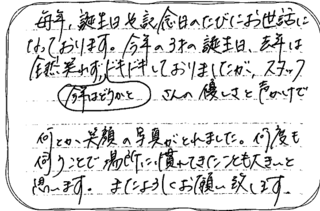 毎年、誕生日や記念日のたびにお世話に
なっております。今年の3才の誕生日、去年は
全然笑わず、ドキドキしておりましたが、スタッフ
今年はどうかと
さんの優しさと声かけで
何とか笑顔の写真がとれました。何度も
伺うことで場所に慣れてきたことも大きいと
思います。またよろしくお願い致します。